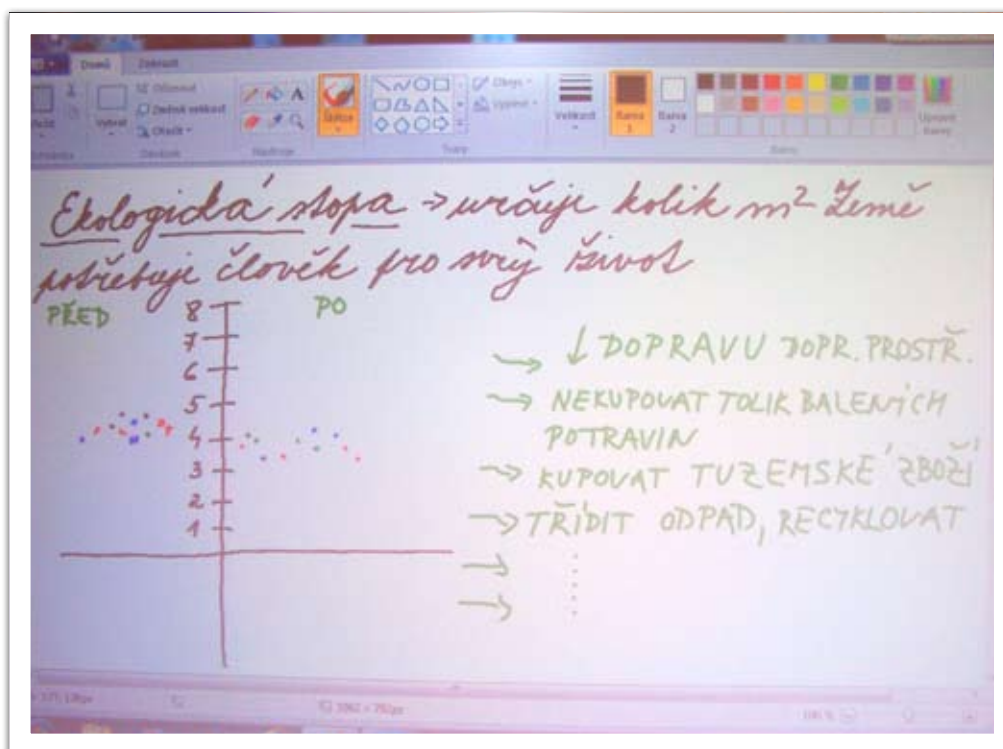 Domů Zobrazit
Oříznout
Změnit velikost
Otočit
Vybrat
Nástroje
Štětce
Obrys
Výplně
Tvary
Velikost
Barva 1
Barva 2
Upravit barvy
Barvy
Ekologická stopa → určuje kolik m² Země
potřebuje člověk pro svůj život
PŘED
PO
8
7
6
5
4
3
2
1
→ ↓ DOPRAVU DOPR. PROSTŘ.
→ NEKUPOVAT TOLIK BALENÝCH
POTRAVIN
→ KUPOVAT TUZEMSKÉ ZBOŽÍ
→ TŘÍDIT ODPAD, RECYKLOVAT
→
→
100 %